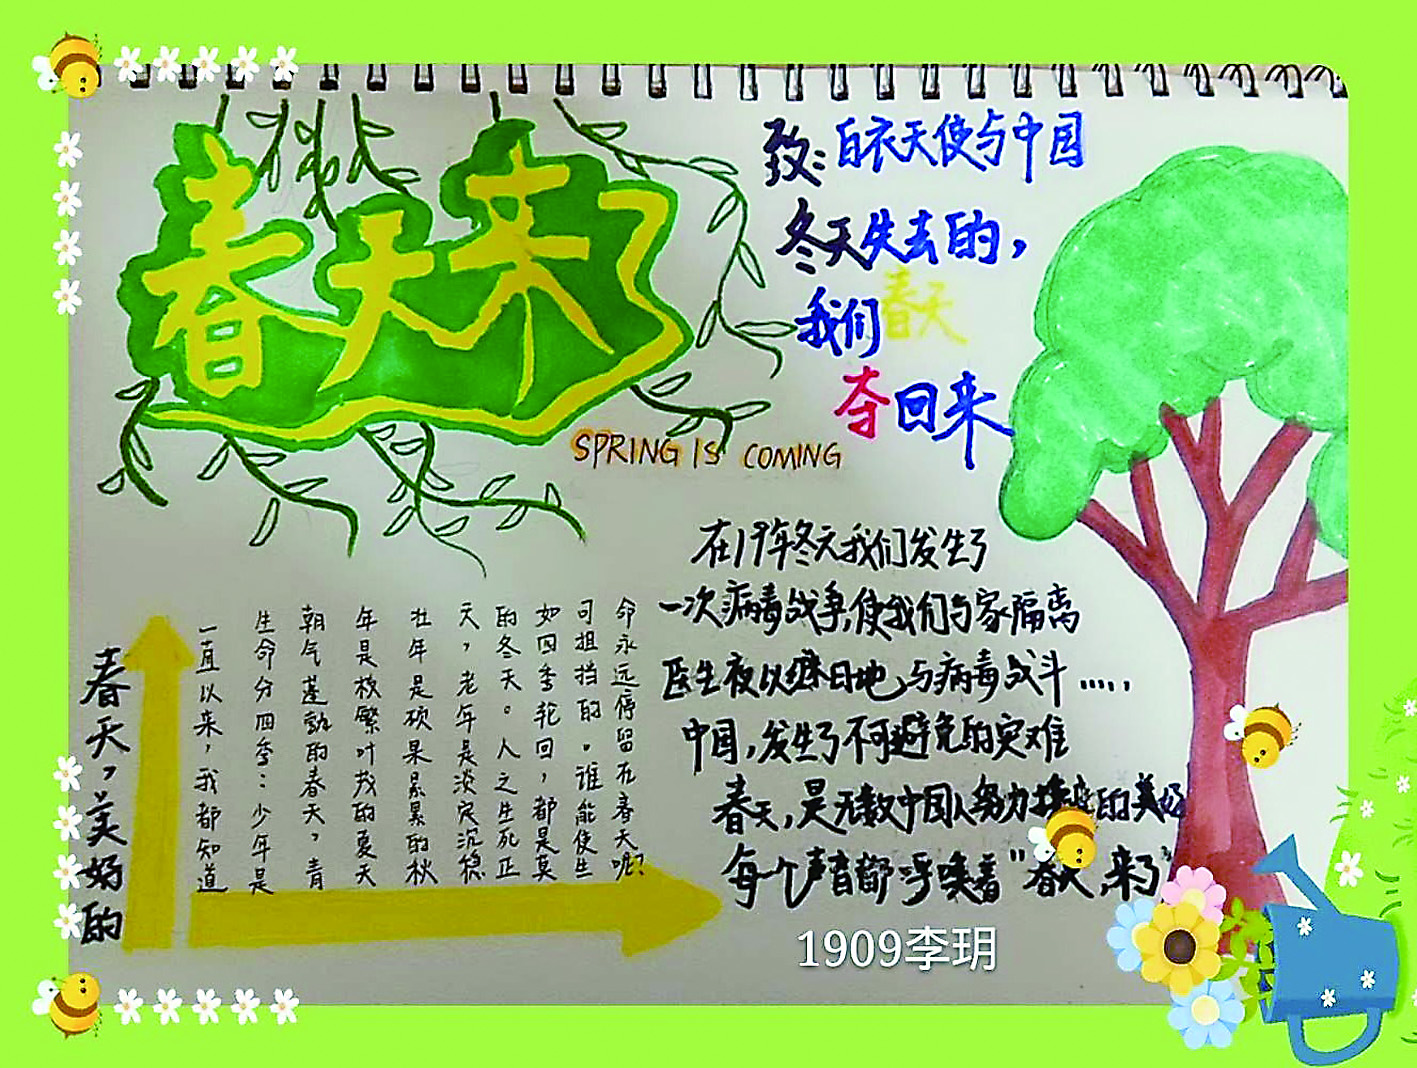 春天来了
SPRING IS COMING
致:白衣天使与中国
冬天失去的,
我们春天
夺回来
春天,美好的
一直以来,我都知道
生命分四季:少年是
朝气蓬勃的春天,青
年是枝繁叶茂的夏天
壮年是硕果累累的秋
天,老年是淡定沉稳
的冬天。人之生死正
如四季轮回,都是莫
可阻挡的。谁能使生
命永远停留在春天呢?
在19年冬天我们发生了
一次病毒战争,使我们与家隔离
医生夜以继日地,与病毒战斗.....
中国,发生了不可避免的灾难
春天,是无数中国人努力的美好
每个声音都呼唤着"春天,来了"
1909李玥